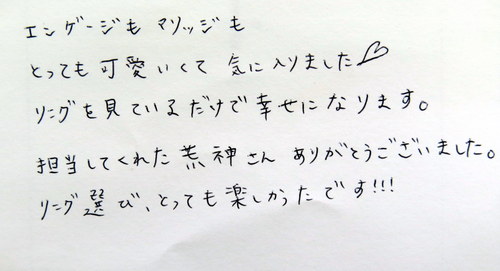 エンゲージも マリッジも
とっても可愛いくて 気に入りました♡
リングを見ているだけで幸せになります。
担当してくれた荒神さん ありがとうございました。
リング選び、とっても楽しかったです!!!